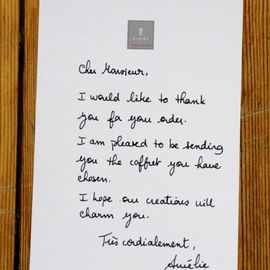 Cher Monsieur,
I would like to thank
you for your order.
I am pleased to be sending
you the coffret you have
chosen.
I hope our creations will
charm you.
Très cordialement,
Aurélie